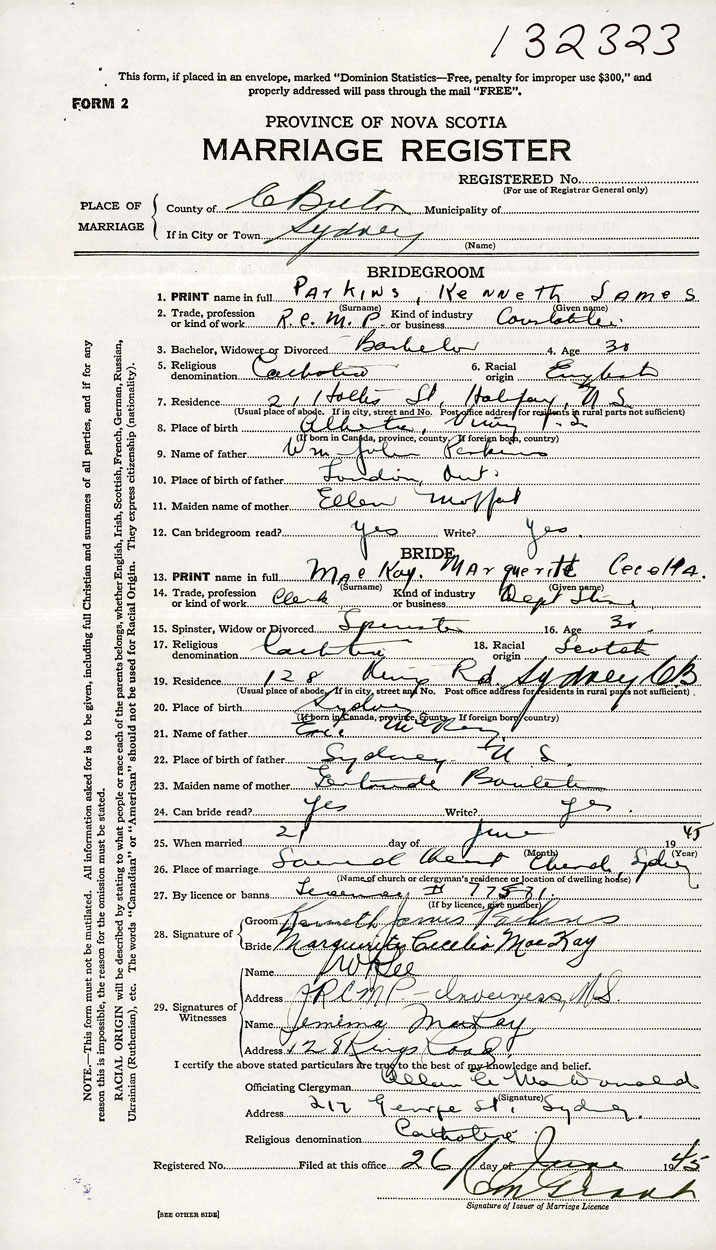 132323
This form, if placed in an envelope, marked “Dominion Statistics—Free, penalty for improper use $300,” and
properly addressed will pass through the mail “FREE”.
FORM 2
PROVINCE OF NOVA SCOTIA
MARRIAGE REGISTER
REGISTERED No.
(For use of Registrar General only)
PLACE OF MARRIAGE
County of C Breton Municipality of
If in City or Town Sydney
(Name)
BRIDEGROOM
1. PRINT name in full Parkins, Kenneth James
(Surname) (Given name)
2. Trade, profession or kind of work R.C.M.P. Kind of industry or business Constable
3. Bachelor, Widower or Divorced Bachelor 4. Age 30
5. Religious denomination Catholic 6. Racial origin English
7. Residence 21 Hollis St, Halifax, N S
(Usual place of abode. If in city, street and No. Post office address for residents in rural parts not sufficient)
8. Place of birth Alberta,
(If born in Canada, province, county. If foreign born, country)
9. Name of father Wm. John Perkins
10. Place of birth of father London, Ont.
11. Maiden name of mother Ellen Moffat
12. Can bridegroom read? Yes Write? Yes.
BRIDE
13. PRINT name in full MacKay, Marguerite Cecelia.
(Surname) (Given name)
14. Trade, profession or kind of work Clerk Kind of industry or business Dept Store
15. Spinster, Widow or Divorced Spinster 16. Age 30
17. Religious denomination Catholic 18. Racial origin Scotch
19. Residence 128 King Rd. Sydney CB
(Usual place of abode. If in city, street and No. Post office address for residents in rural parts not sufficient)
20. Place of birth Sydney
(If born in Canada, province, county. If foreign born, country)
21. Name of father Eric McKay
22. Place of birth of father Sydney N S.
23. Maiden name of mother Gertrude
24. Can bride read? Yes Write? Yes.
25. When married 21 day of June 1945
(Month) (Year)
26. Place of marriage Sacred Heart Church, Sydney
(Name of church or clergyman's residence or location of dwelling house)
27. By licence or banns
(If by licence, give number)
28. Signature of
Groom Kenneth James
Bride Marguerite Cecelia MacKay
29. Signatures of Witnesses
Name
Address RCMP - Inverness, N.S.
Name Jemima MacKay
Address 128 Kings Road
I certify the above stated particulars are true to the best of my knowledge and belief.
Officiating Clergyman MacDonald
(Signature)
Address 217 George St, Sydney.
Religious denomination Catholic
Registered No. Filed at this office 26 day of June 1945
Signature of Issuer of Marriage Licence
[SEE OTHER SIDE]
NOTE.—This form must not be mutilated. All information asked for is to be given, including full Christian and surnames of all parties, and if for any
reason this is impossible, the reason for the omission must be stated.
RACIAL ORIGIN will be described by stating to what people or race each of the parents belongs, whether English, Irish, Scottish, French, German, Russian,
Ukrainian (Ruthenian), etc. The words “Canadian” or “American” should not be used for Racial Origin. They express citizenship (nationality).